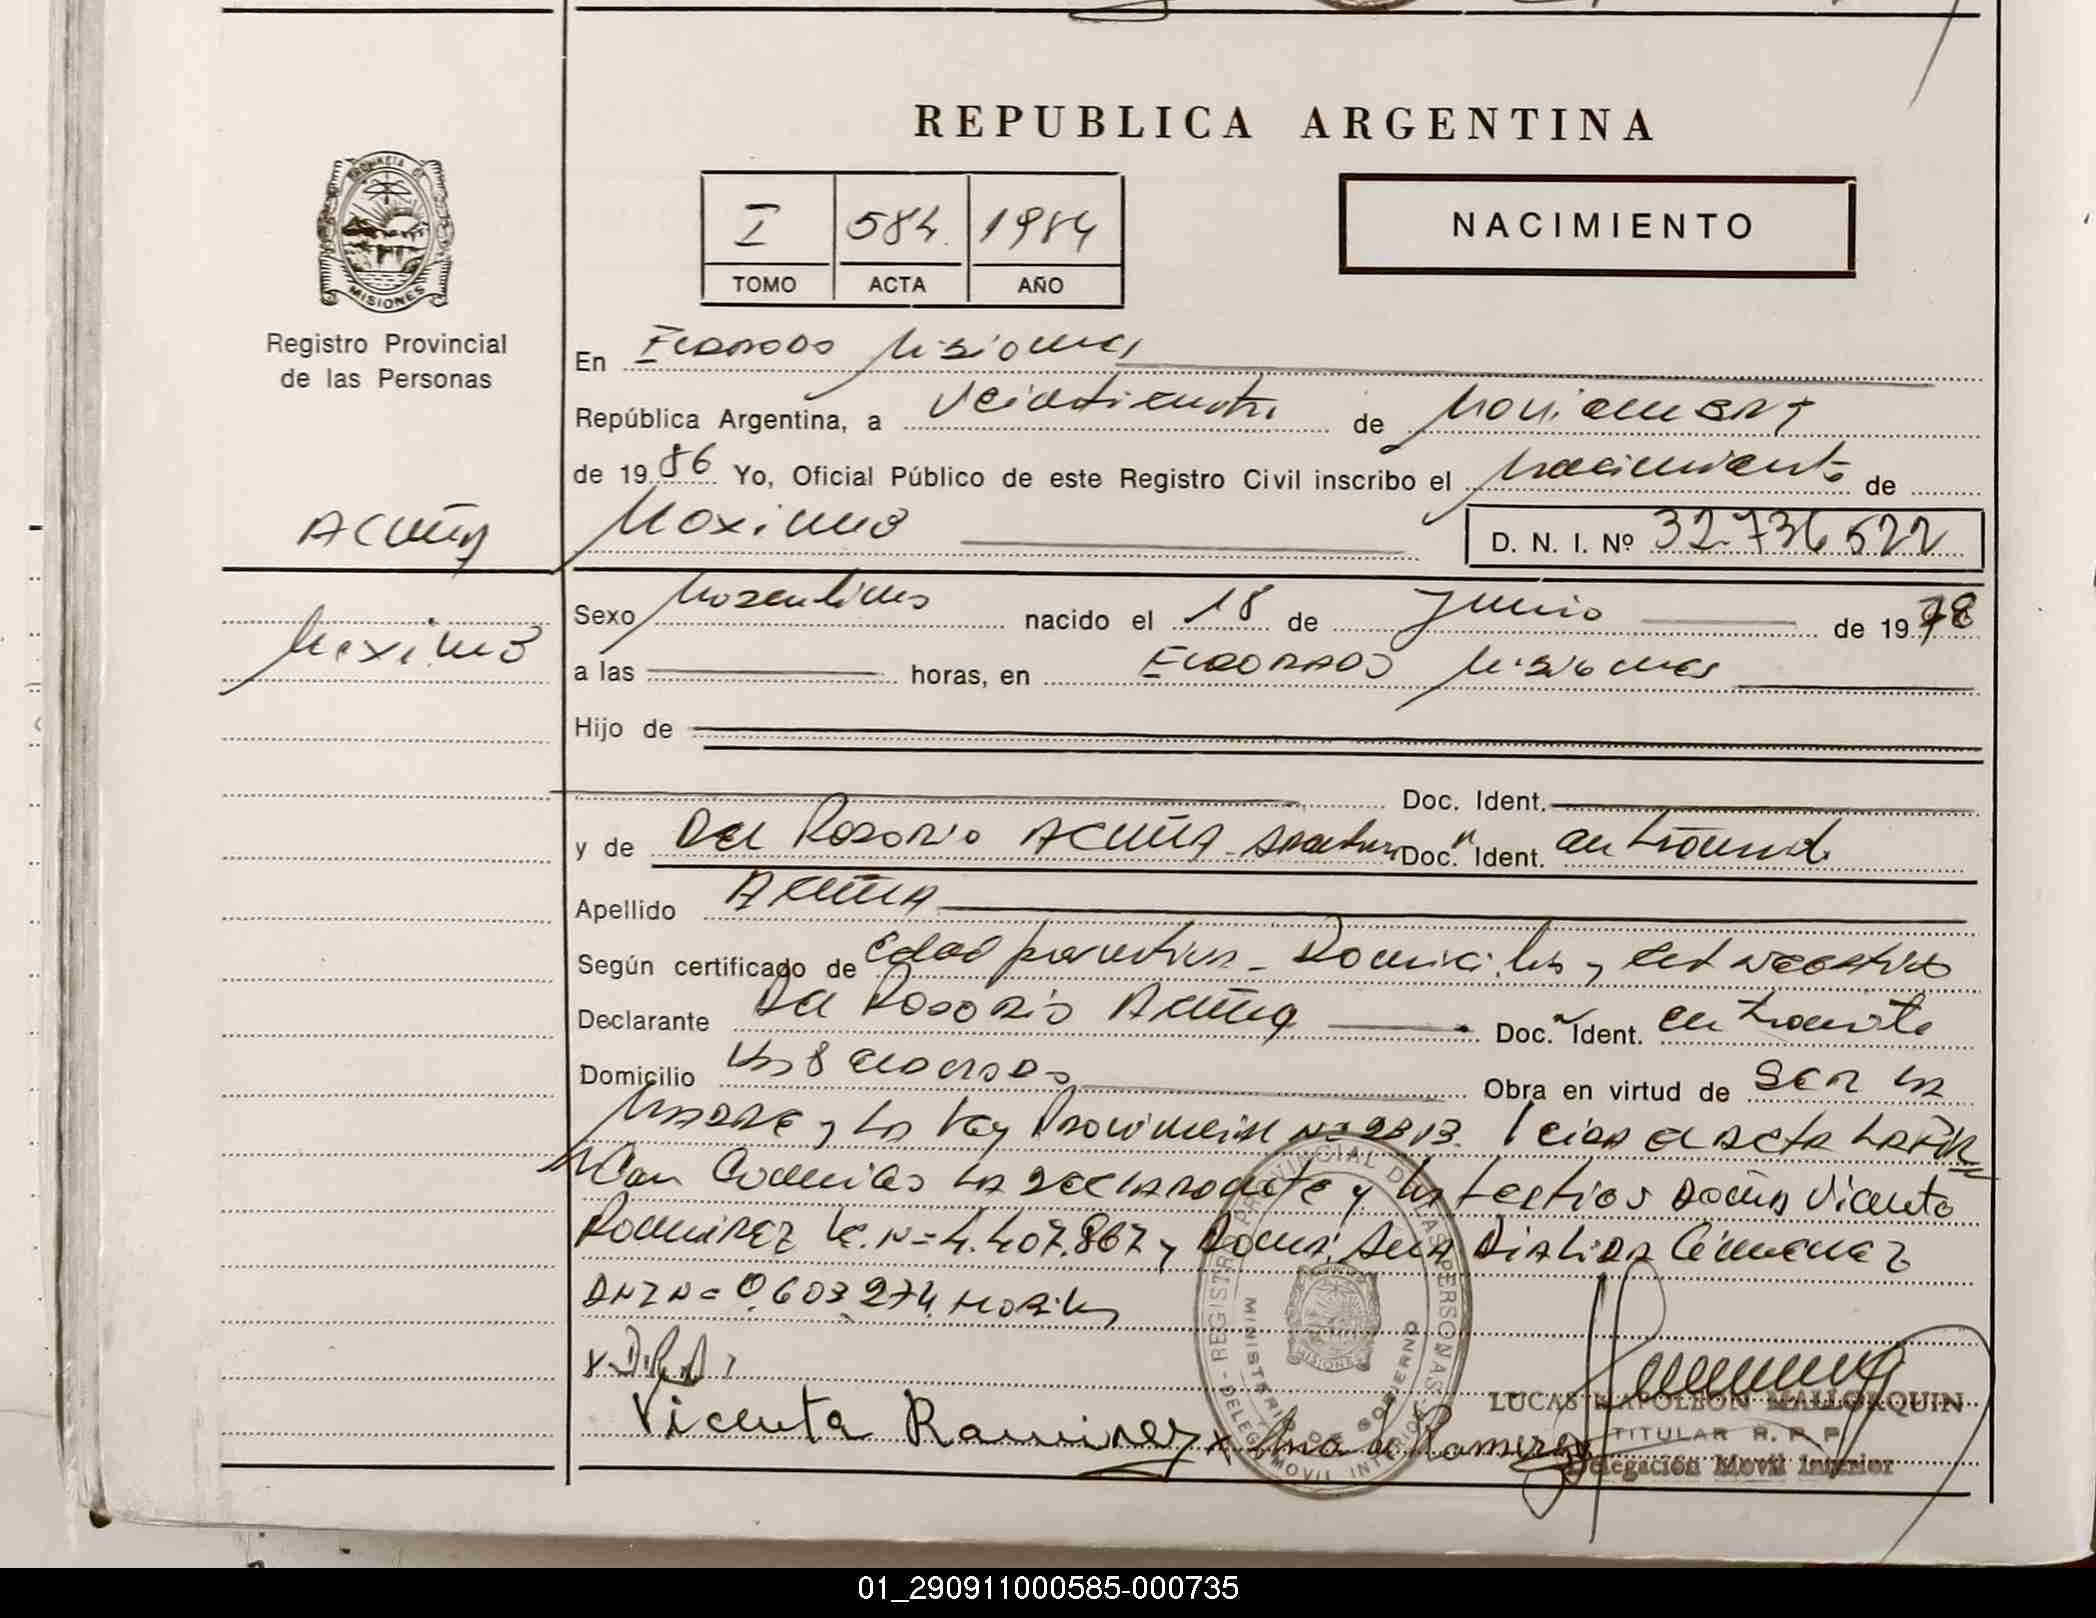 REPUBLICA ARGENTINA
I 584 1984
TOMO ACTA AÑO
NACIMIENTO
PROVINCIA DE
MISIONES
Registro Provincial
de las Personas
ACUÑA
Maximo
En Eldorado Misiones
República Argentina, a Veinticuatro de Noviembre
de 1986 Yo, Oficial Público de este Registro Civil inscribo el Nacimiento de
Maximo D. N. I. Nº 32.736.522
Sexo Masculino nacido el 18 de Junio de 1978
a las horas, en Eldorado Misiones
Hijo de
Doc. Ident.
y de Del Rosario ACUÑA Doc. Ident. en tramite
Apellido Acuña
Según certificado de Edad presuntiva - Domicilio y
Declarante Del Rosario Acuña Doc. Ident. en tramite
Domicilio Eldorado Obra en virtud de ser la
Madre y la Ley Provincial Nº 2313. Leida el acta la fir
man conmigo la declarante y los testigos Doña Vicenta
Ramirez N= 4.407.867 y Doña Ana Gimenez
DNI N= 0.603.274
x D.R.A
Vicenta Ramirez x Ana de Ramirez
REGISTRO PROVINCIAL DE LAS PERSONAS
MINISTERIO DE GOBIERNO
DELEG. MOVIL INTERIOR
MISIONES
LUCAS NAPOLEON MALLORQUIN
TITULAR R. P. P.
Delegación Movil Interior
01_290911000585-000735